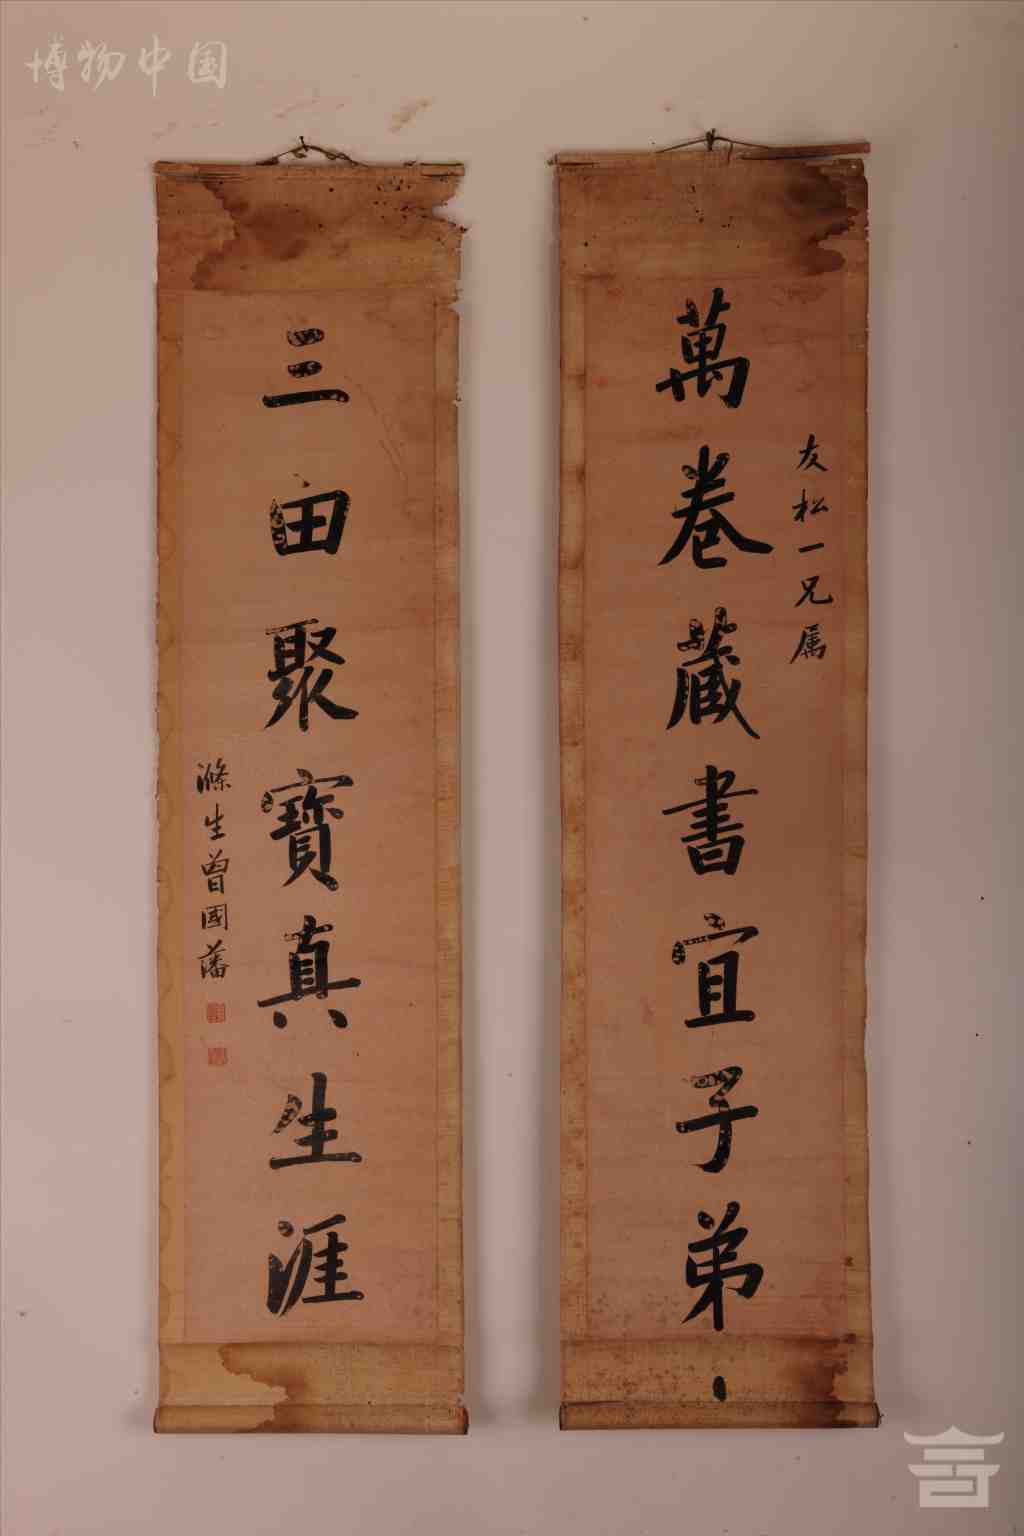 博物中国
友松一兄属
萬卷藏書宜子弟
三田聚寶真生涯
滌生曾國藩